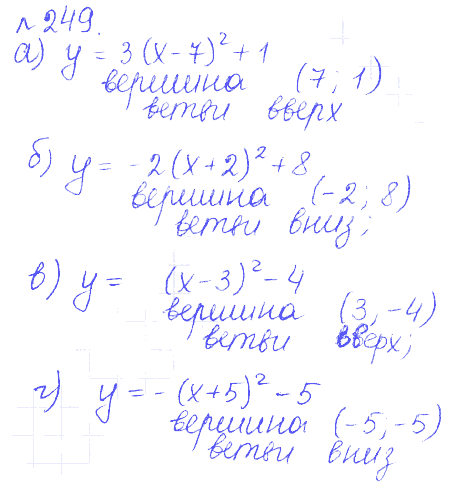 № 249.
а) y = 3(x-7)² + 1
вершина (7; 1)
ветви вверх
б) y = -2(x+2)² + 8
вершина (-2; 8)
ветви вниз;
в) y = (x-3)² - 4
вершина (3, -4)
ветви вверх;
г) y = -(x+5)² - 5
вершина (-5; -5)
ветви вниз